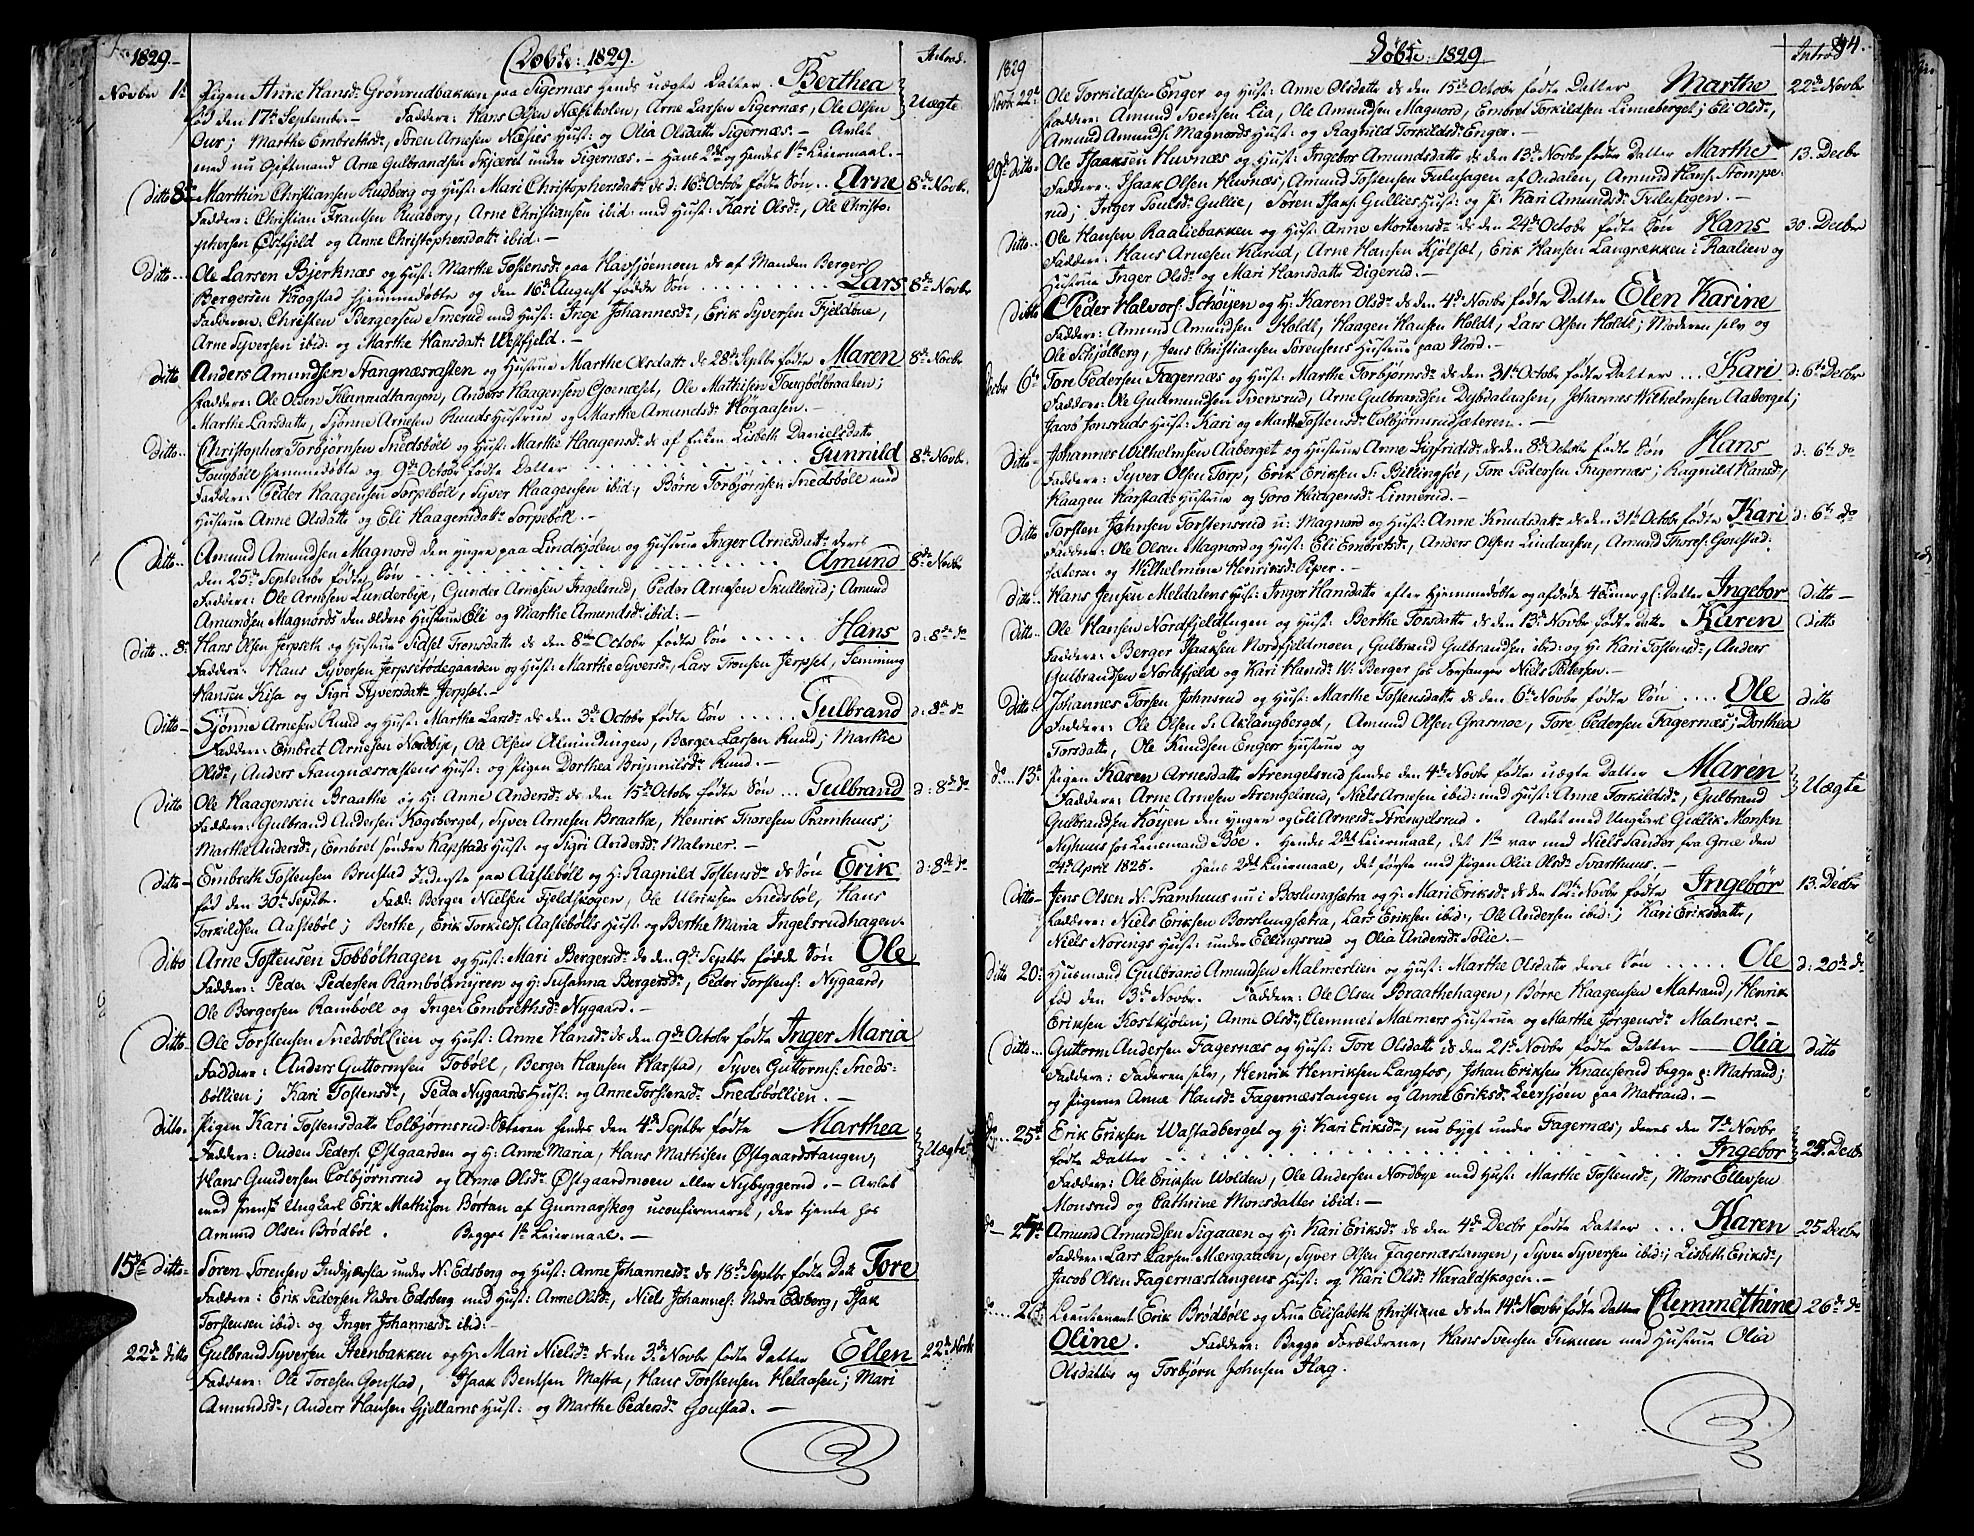 1829.
Døbte: 1829.
Introd.
Novbr 1te Pigen Stine Hansdr Grönrudbakken paa Sigernæs hends uægte Datter. Berthea
fød den 17de Septembr. – Faddere: Hans Olsen Næsholen, Arne Larsen Sigernæs, Ole Olsen Uægte
Our; Marthe Embrethsdr, Sören Arnesen Næsies Hust: og Olia Olsdatte Sigernæs. – Avlet
med nu Giftemand Arne Gulbrandsen Skjæret under Sigernæs. – Hans 2det og Hendes 1te Leiermaal. –
Ditto 8de Marthin Christiansen Rudberg og Hust: Mari Christophersdatr ds d. 16de Octobr fødte Søn .. Arne 8de Novbr.
Faddere: Christian Fransen Rudberg, Arne Christiansen ibid: med Hust: Kari Olsdr, Ole Christo-
phersen Østfjeld og Anne Christophersdatt ibid: –
Ditto... Ole Larsen Bjerknæs og Hust: Marthe Tostensdr paa Havsjøemoen ds af Manden Berger
Bergersen Krogstad hjemmedøbte og den 16de August fødde Søn .......... Lars 8de Novbr
Fadderen: Christen Bergersen Smerud med Hust: Inge Johannesdr, Erik Syversen Fjeldbye,
Arne Syversen ibid: og Marthe Hansdatr Westfjeld. –
Ditto Anders Amundsen Stangnæsrasten og Hustrue Marthe Olsdatt ds 28de Septbr fødte Maren 8de Novbr
Faddere: Ole Olsen Klannidtangen, Anders Haagensen Gjernæset, Ole Mathisen Tougbölbraaten;
Marthe Larsdatte, Sjönne Arnesen Ruuds Hustrue og Marthe Amundsdr Högaasen. –
Ditto.. Christopher Torbjørnsen Snedsböll og Hust: Marthe Haagensdr ds af Enken Lisbeth Danielsdatte
Tougböle hjemmedøbte og 9de Octobr fødte Datter ............ Gunnild 8de Novbr.
Faddere: Peder Haagensen Sorpeböl, Syver Haagensen ibid:, Börre Torbjørnsen Snedsbölle med
Hustrue Anne Olsdatte og Eli Haagensdatr Sorpeböll. –
Ditto.. Amund Amundsen Magnord den yngre paa Lindkjölen og Hustrue Inger Arnesdatr deres
den 25de Septembr fødte Søn ............ Amund 8de Novbr
Faddere: Ole Arnesen Lunderbye, Gunder Arnesen Ingelsrud, Peder Arnesen Skullerud; Amund
Amundsen Magnords den ældres Hustrue Eli og Marthe Amundsdr ibid: –
Ditto.. 8de Hans Olsen Jerpseth og Hustrue Sidsel Tronsdatte ds den 8de Octobr fødte Søn ..... Hans d: 8de do
Faddere: Hans Syversen Jerpsetødegaarden og Hust: Marthe Syversdr, Lars Tronsen Jerpset, Semming
Hansen Kisa og Sigri Syversdatt Jerpset. –
Ditto – Sjönne Arnesen Ruud og Hust: Marthe Larsdr ds den 3de Octobr fødte Søn ..... Gulbrand d: 8de do
Faddere: Embret Arnesen Nordbye, Ole Olsen Almindingen, Berger Larsen Ruud; Marthe
Olsdr, Anders Stangnæsrastens Hust: og Pigen Dorthea Brynnilsdr Ruud. –
Ditto Ole Haagensen Braathe og H: Anne Andersdr ds den 15de Octobr fødte Søn ... Gulbrand d: 8de do
Faddere: Gulbrand Andersen Kogsberget, Syver Arnesen Braathe, Henrik Thoresen Pramhuus;
Marthe Andersdr, Embret söndre Kapstads Hust: og Sigri Andersdr Malmer. –
Ditto – Embreth Tostensen Brustad Inderste paa Aaslebøll og H: Ragnild Tostensdr ds Søn Erik d: 8de do
fød den 30te Septbr. Fadd: Berger Nielsen Fjeldskogen, Ole Ulriksen Snedsböl, Hans
Torkildsen Aaslebøl; Berthe, Erik Torkilds: Aaslebölls Hust: og Berthe Maria Ingelsrudhagen.
Ditto Arne Tostensen Tobbölhagen og Hust: Mari Bergersdr ds den 9de Septbr fødde Søn Ole
Faddere: Peder Pedersen Rambölmyren og H: Susanna Bergersdr, Peder Torstens: Nygaard,
Ole Bergersen Ramböll og Inger Embrethsdr Nygaard. –
Ditto – Ole Torstensen Snedsböllien og Hust: Anne Hansdr ds den 9de Octobr fødte Inger Maria
Faddere: Anders Guttormsen Toböll, Berger Hansen Harstad, Syver Guttorms: Sneds-
böllien; Kari Tostensdr, Peder Nygaards Hust: og Anne Torstensdr Snedsböllien. –
Ditto. Pigen Kari Tostensdatte Colbjørnsrud-Sæteren hendes den 4de Septbr fødte Marthea
Faddere: Ouden Peders: Østgaarden og H: Anne Maria, Hans Mathisen Østgaardstangen, Uægte
Hans Gundersen Colbjørnsrud og Anne Olsdr Østgaardmoen eller Nybyggerud. – Avlet
med svensk Ungkarl Erik Mathison Bortan af Gunnarskog uconfirmeret, der tjente hos
Amund Olsen Brödböl. Begges 1te Leiermaal. –
15de Ditto – Sören Sorensen Indgjærsla under N: Edsberg og Hust: Anne Johannesdr ds 18de Septbr fødte Datt Tore
Faddere: Erik Pedersen Nedre Edsberg med Hust: Anne Olsdr, Niels Johannes: Nedre Edsberg, Isak
Torstensen ibid: og Inger Johannesdr ibid: –
22de ditto Gulbrand Syversen Steenbakken og H: Mari Nielsdr ds den 3de Novbr fødte Datter Ellen 22de Novbr
Faddere: Ole Toresen Gonstad, Isaak Bentsen Mastra, Hans Torstensen Helaasen; Mari
Amundsdr, Anders Hansen Gjellarns Hust: og Marthe Pedersdr Gonstad. –
44.
1829
Døbte: 1829
Introd
Novbr 22de Ole Torkildsen Enger og Hust: Anne Olsdatte ds den 15de Octobr fødte Datter Marthe 22de Novbr
Faddere: Amund Svensen Lia, Ole Amundsen Magnord, Embret Torkildsen Linneberget; Eli Olsdr,
Amund Amunds: Magnords Hust: og Ragnild Torkildsdr Enger. –
29de ditto.. Ole Isaaksen Huvnæs og Hust: Ingebor Amundsdatte ds den 13de Novbr fødte Datter Marthe 13. Decbr
Faddere: Isaak Olsen Huvnæs, Amund Tostensen Fulusagen af Oudalen, Amund Hans: Stompe-
rud; Inger Poulsdr Gullie, Soren Isaks: Gullies Hust: og P: Kari Amundsdr Fulusagen. –
Ditto.. Ole Hansen Raaliebakken og Hust: Anne Mortensdr ds den 24de Octobr fødte Søn Hans 30. Decbr
Faddere: Hans Arnesen Kurud, Arne Hansen Kjölset, Erik Hansen Langrækken i Raalien og
Hustrue Inger Olsdr og Mari Hansdatte Digerud. –
Ditto Peder Halvors: Schøyen og H: Karen Olsdr ds den 4de Novbr fødte Datter Elen Karine
Faddere: Amund Amundsen Holdt, Haagen Hansen Holdt, Lars Olsen Holdt; Moderen selv og
Ole Schjølberg, Jens Christiansen Sörensens Hustrue paa Nord. –
Decbr 6te Tore Pedersen Fagernæs og Hust: Marthe Torbjørnsdr ds den 31te Octobr fødte Datter ... Kari d: 6te Decbr
Faddere: Ole Gudmundsen Svensrud, Arne Gulbrandsen Dybdalaasen, Johannes Wilhelmsen Aaberget;
Jacob Jonsruds Hust: Kari og Marthe Tostensdr Colbjørnsrudsæteren. –
Ditto. Johannes Wilhelmsen Aaberget og Hustrue Anne Sigfridsdr ds den 8de Octobr fødte Søn Hans d: 6te do
Faddere: Syver Olsen Torp, Erik Eriksen S: Billingsöe, Tore Pedersen Fagernæs; Ragnild Hansdr,
Haagen Harstads Hustrue og Toro Helgensdr Linnerud. –
Ditto Torsten Johnsen Torstensrud u: Magnord og Hust: Anne Knudsdatt ds den 31te Octobr fødte Kari d: 6te do
Faddere: Ole Olsen Magnord og Hust: Eli Embretsdr, Anders Olsen Lindaasen, Amund Thores: Gonstad-
sæteren og Wilhelmine Henriksdr Piper. –
Ditto.. Hans Jensen Meldalens Hust: Inger Hansdatte efter hjemmedøbte og afdöde 4 Timer gl: Datter Ingebor Ditto –
Ditto. Ole Hansen Nordfjeldengen og Hust: Berthe Torsdatte ds den 13de Novbr fødte Dattr Karen ditto
Faddere: Berger Isaksen Nordfjeldmoen, Gulbrand Gulbrandsen ibid: og H: Kari Tostensdr, Anders
Gulbrandsen Nordfjeld og Kari Hansdr W: Berger hos Forsanger Niels Petersen. –
Ditto. Johannes Torsen Johnsrud og Hust: Marthe Tostensdatte ds den 6te Novbr fødte Søn .... Ole ditto
Faddere: Ole Olsen S: Aklangberget, Amund Olsen Grasmoe, Tore Pedersen Fagernæs; Dorthea
Torsdatte, Ole Knudsen Engers Hustrue og
do... 13de Pigen Karen Arnesdatte Strengelsrud hendes den 4de Novbr fødte uægte Datter Maren
Faddere: Arne Arnesen Strengelsrud, Niels Arnesen ibid: med Hust: Anne Torkildsdr, Gulbrand Uægte
Gulbrandsen Høyen den yngre og Eli Arnesdr Strengelsrud. Avlet med Ungkarl Gullik Monsen
Nyhuus hos Leiemand Böe. Hendes 2det Leiermaal, det 1te var med Niels Sander, fra Grue den
24de April 1825. Hans 2det Leiermaal, det første med Pigen Olia Olsdr Svarthuus. –
Ditto – Jens Olsen N: Pramhuus nu i Boslungsætra og H: Mari Eriksdr ds den 12te Novbr fødte Ingebör 13. Decbr
Faddere: Niels Eriksen Borslungsetra, Lars Eriksen ibid:, Ole Andersen ibid:; Kari Eriksdatte,
Niels Norings Hust: under Ellingsrud og Olia Andersdr Solie. –
Ditto 20: Huusmand Gulbrand Amundsen Malmerlien og Hust: Marthe Olsdatte deres Søn ..... Ole d: 20de do
fød den 3de Novbr. Faddere: Ole Olsen Braathehagen, Børre Haagensen Matrand, Henrik
Eriksen Kostkjölen; Anne Olsdr, Clemmet Malmers Hustrue og Marthe Jörgensdr Malmer. –
Ditto... Guttorm Andersen Fagernæs og Hust: Tore Olsdatte ds den 21de Novbr fødte Datter – Olia Ditto
Faddere: Faderen selv, Henrik Henriksen Langfos, Johan Eriksen Knauserud begge p: Matrand;
og Pigerne Anne Hansdr Fagernæstangen og Anne Eriksdr Leersjøen paa Matrand. –
do... 25de Erik Eriksen Wastadberget og H: Kari Eriksdr, nu bygt under Fagernæs, deres den 7de Novbr
fødte Datter .................. Ingebor 25. Decbr
Faddere: Ole Eriksen Wolden, Ole Andersen Nordbye med Hust: Marthe Tostensdr, Mons Ellevsen
Monsrud og Cathrine Monsdatter ibid: –
do – 25de Amund Amundsen Sigaaen og H: Kari Eriksdr ds den 4de Decbr fødte Datter ... Karen 25 Decbr
Faddere: Lars Larsen Mængaaen, Syver Olsen Fagernæstangen, Syver Syversen ibid:; Lisbeth Eriksdr,
Jacob Olsen Fagernæstangens Hust: og Kari Olsdr Haraldskogen. –
do.... 26de Lieutenant Erik Brödböll og Frue Elisabeth Christiane ds den 14de Novbr fødte Datter Clemmethine 26de do
Oline. Faddere: Begge Forældrene, Hans Svensen Tuknen med Hustrue Olia
Olsdatter og Torbjørn Johnsen Hag.